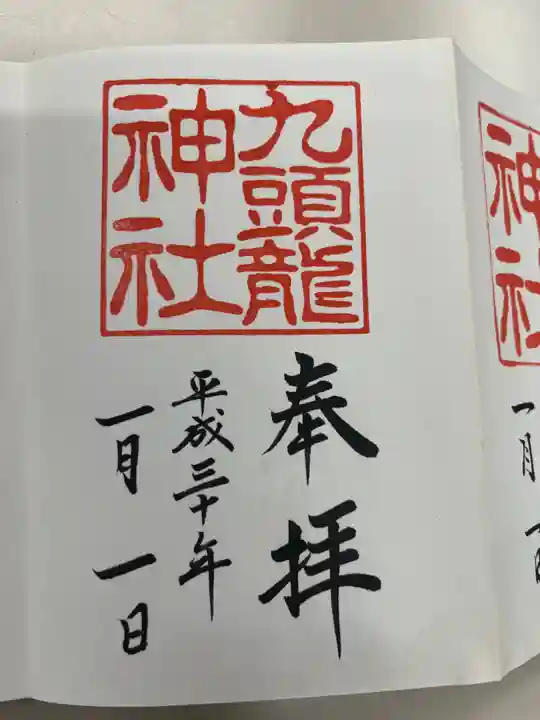 九頭龍
神社
奉拝
平成三十年
一月一日
神
社
一月一日